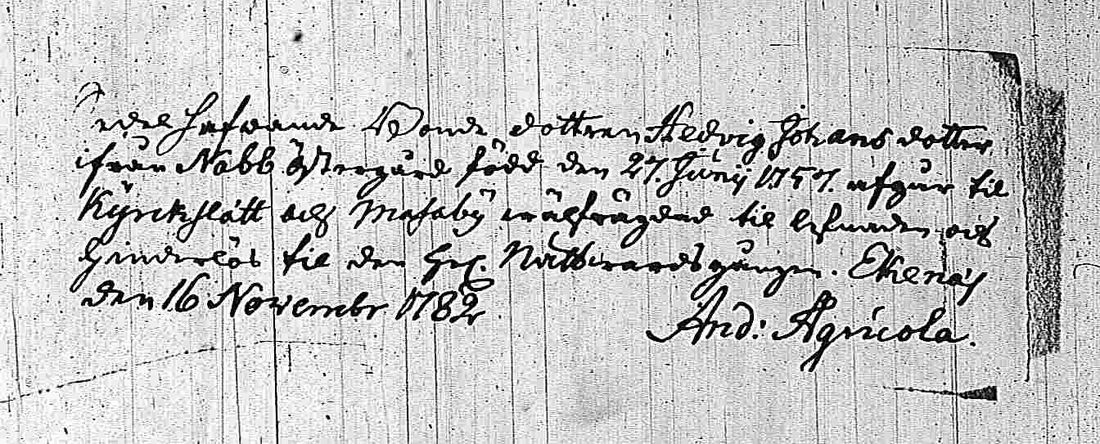 Bonde dottren Hedvig Johans dotter
ifrån Nabb Östergård född den 27. Junij 1757. afgår til
Kyrckslätt och Masaby wälfrägdad til lefnaden och
hinderlös til den Hel. Nattvardsgången. Ekenäs
den 16 Novembr 1782
And: Agricola.